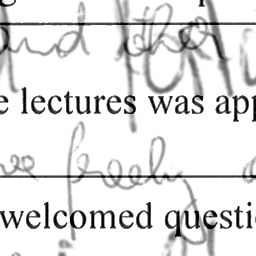 and other
e lectures was app
freely
welcomed questi